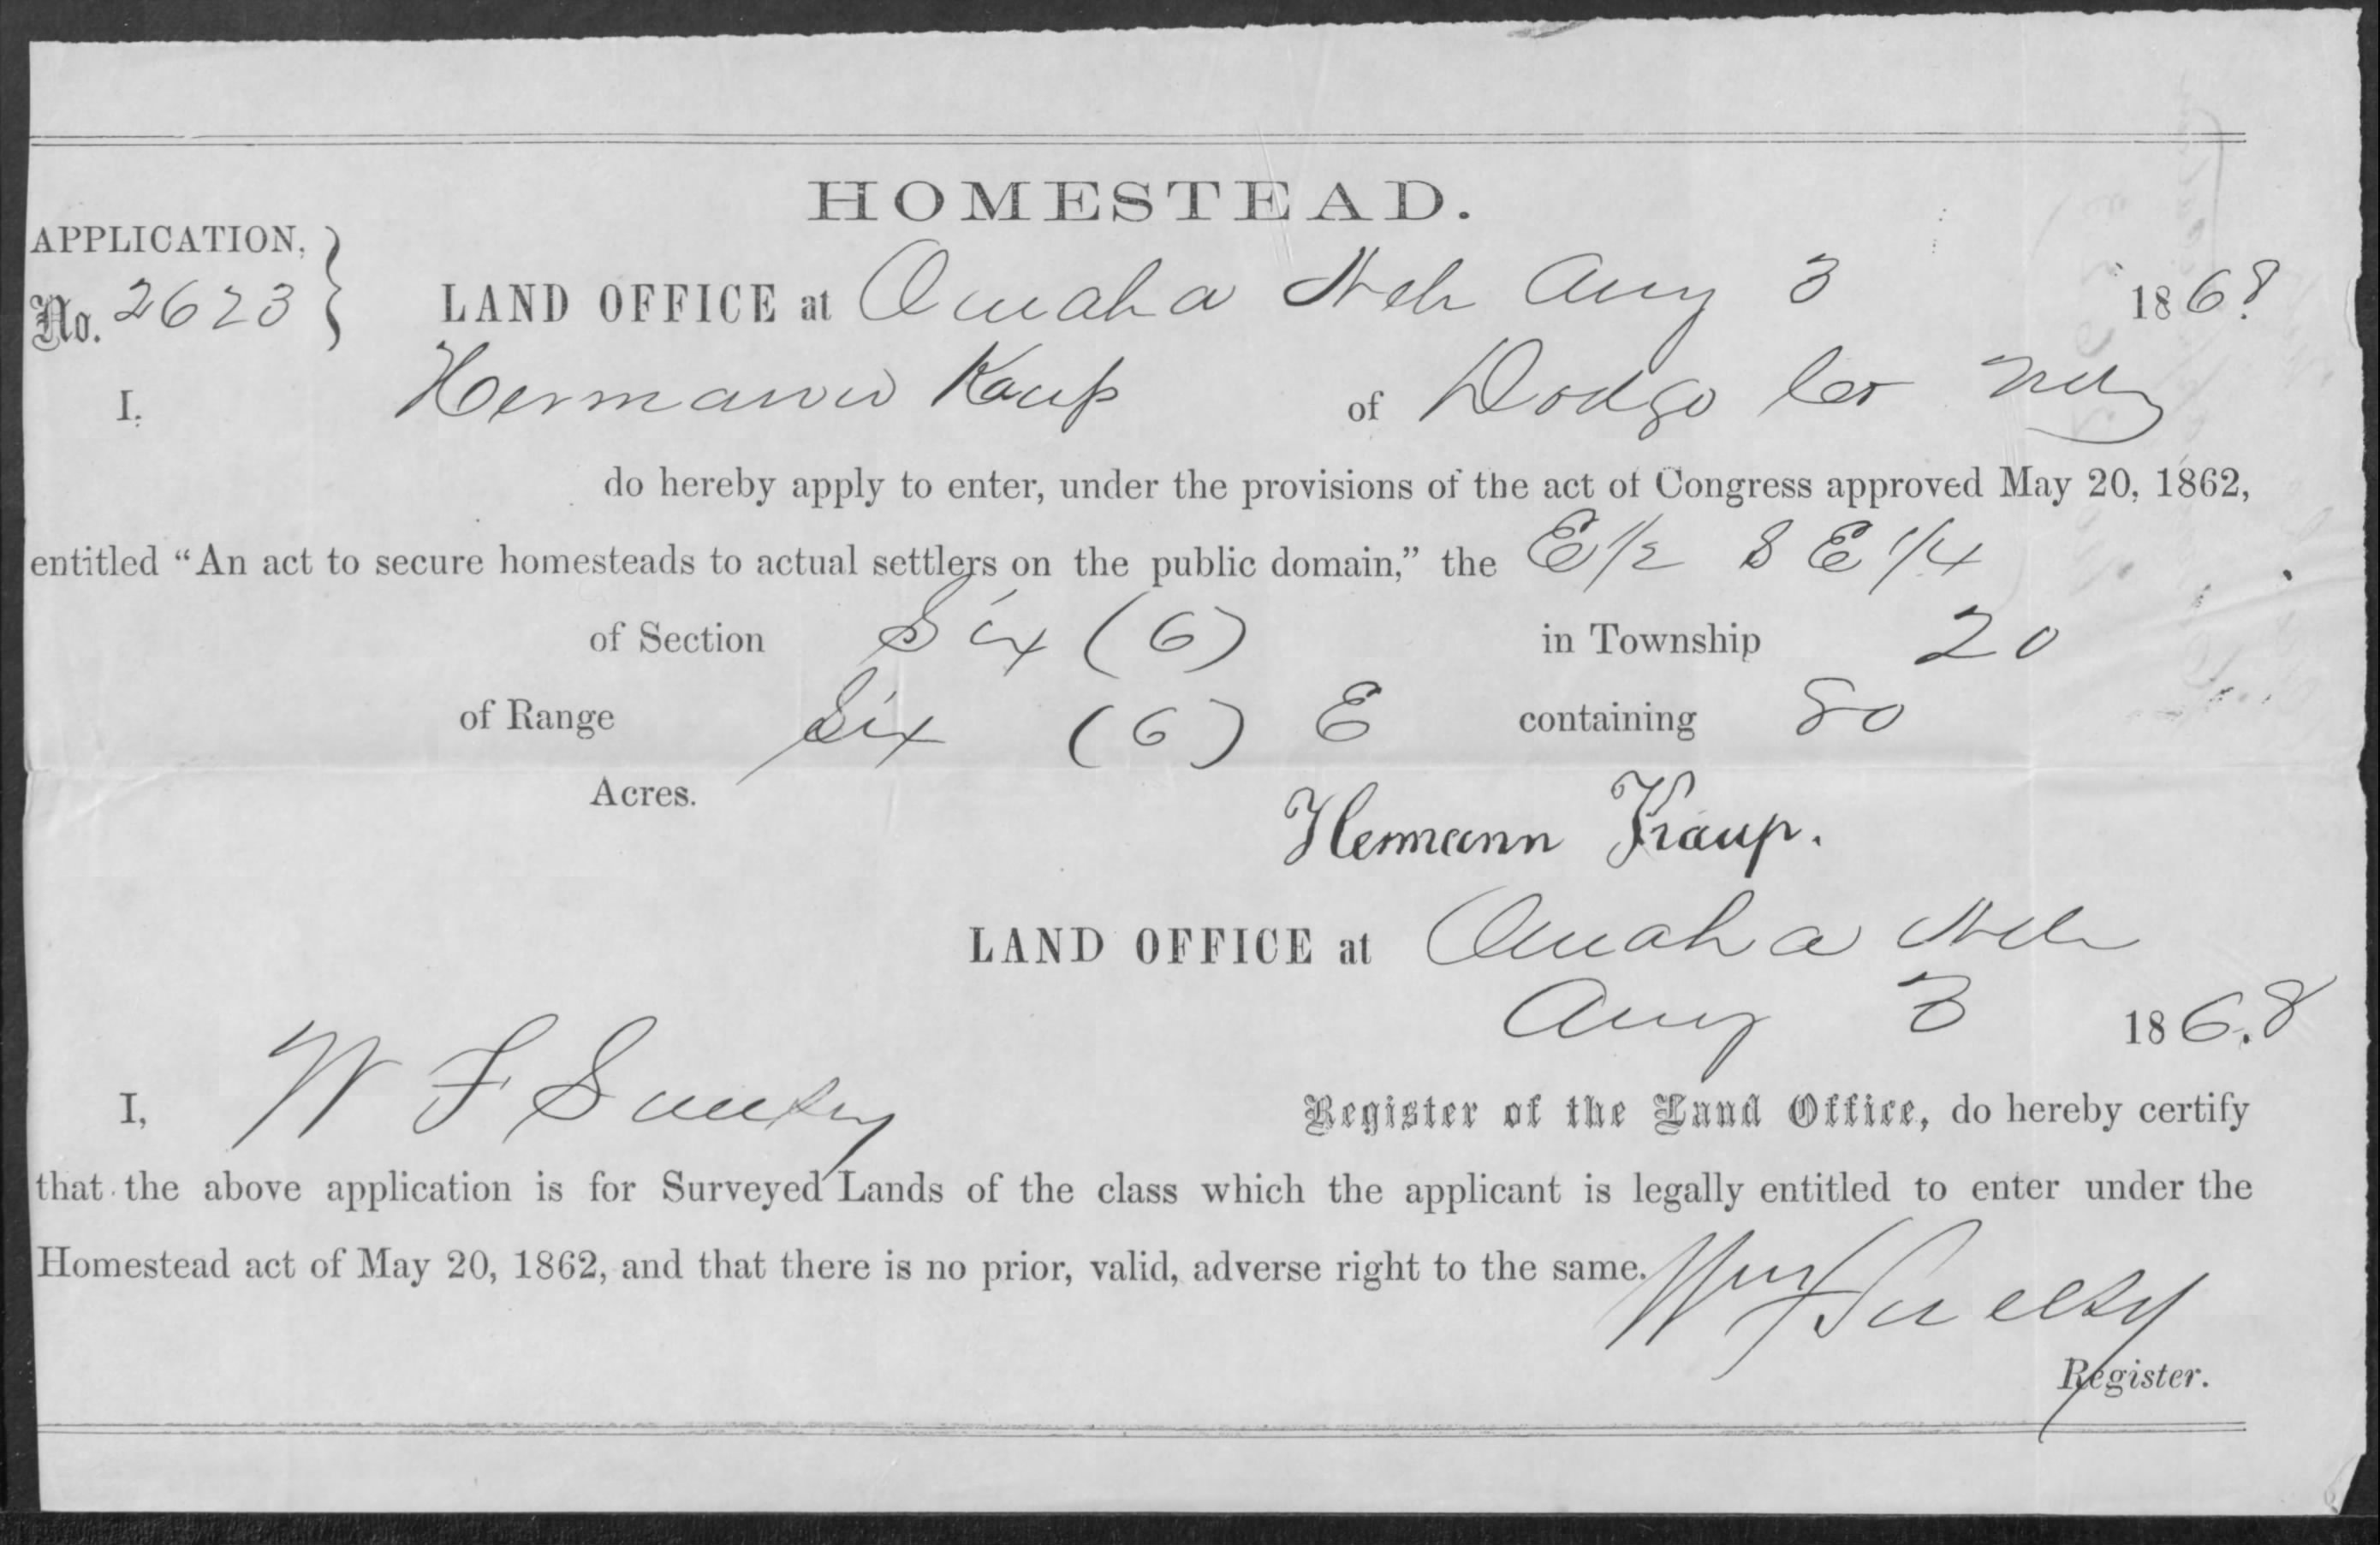 HOMESTEAD.
APPLICATION,
No. 2623
LAND OFFICE at Omaha Neb Aug 3 1868.
I, Hermann Kaup of Dodge Co Neb
do hereby apply to enter, under the provisions of the act of Congress approved May 20, 1862,
entitled “An act to secure homesteads to actual settlers on the public domain,” the E 1/2 S E 1/4
of Section Six (6) in Township 20
of Range Six (6) E containing 80
Acres.
Hermann Kaup.
LAND OFFICE at Omaha Neb
Aug 3 1868
I, W F Register of the Land Office, do hereby certify
that the above application is for Surveyed Lands of the class which the applicant is legally entitled to enter under the
Homestead act of May 20, 1862, and that there is no prior, valid, adverse right to the same.
Register.